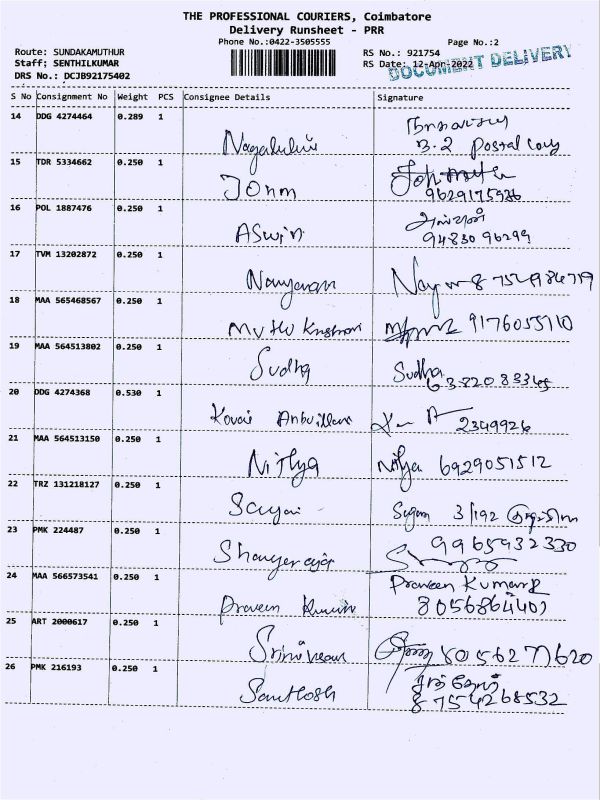 THE PROFESSIONAL COURIERS, Coimbatore
Delivery Runsheet - PRR
Phone No.:0422-3505555
Page No.:2
Route: SUNDAKAMUTHUR
RS No.: 921754
Staff; SENTHILKUMAR
RS Date: 12-Apr-2022
DOCUMENT DELIVERY
DRS No.: DCJB92175402
S No Consignment No Weight PCS Consignee Details Signature
14 DDG 4274464 0.289 1
3.2 Postal
15 TDR 5334662 0.250 1
John
9629175936
16 POL 1887476 0.250 1
Aswin அஸ்வின்
94830 96299
17 TVM 13202872 0.250 1
Narayanan
18 MAA 565468567 0.250 1
Muthu Krishnan
19 MAA 564513802 0.250 1
Sudha Sudha
20 DDG 4274368 0.530 1
Kovai 2349926
21 MAA 564513150 0.250 1
Nithya Nithya 6929051512
22 TRZ 131218127 0.250 1
3/192
23 PMK 224487 0.250 1
9965932330
24 MAA 566573541 0.250 1
Praveen Kumar Praveen Kumar R
8056864401
25 ART 2000617 0.250 1
Srinivasan 8056271620
26 PMK 216193 0.250 1
Santhosh
8754268532